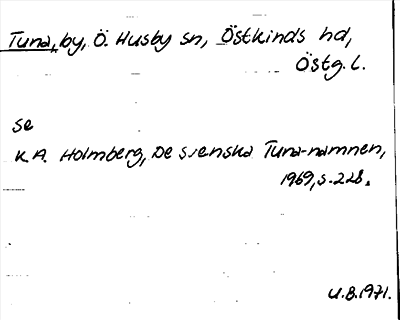 Tuna, by, Ö. Husby sn, Östkinds hd,
Östg. l.
se
K.A. Holmberg, De svenska Tuna-namnen,
1969, s. 228.
U.B. 1971.